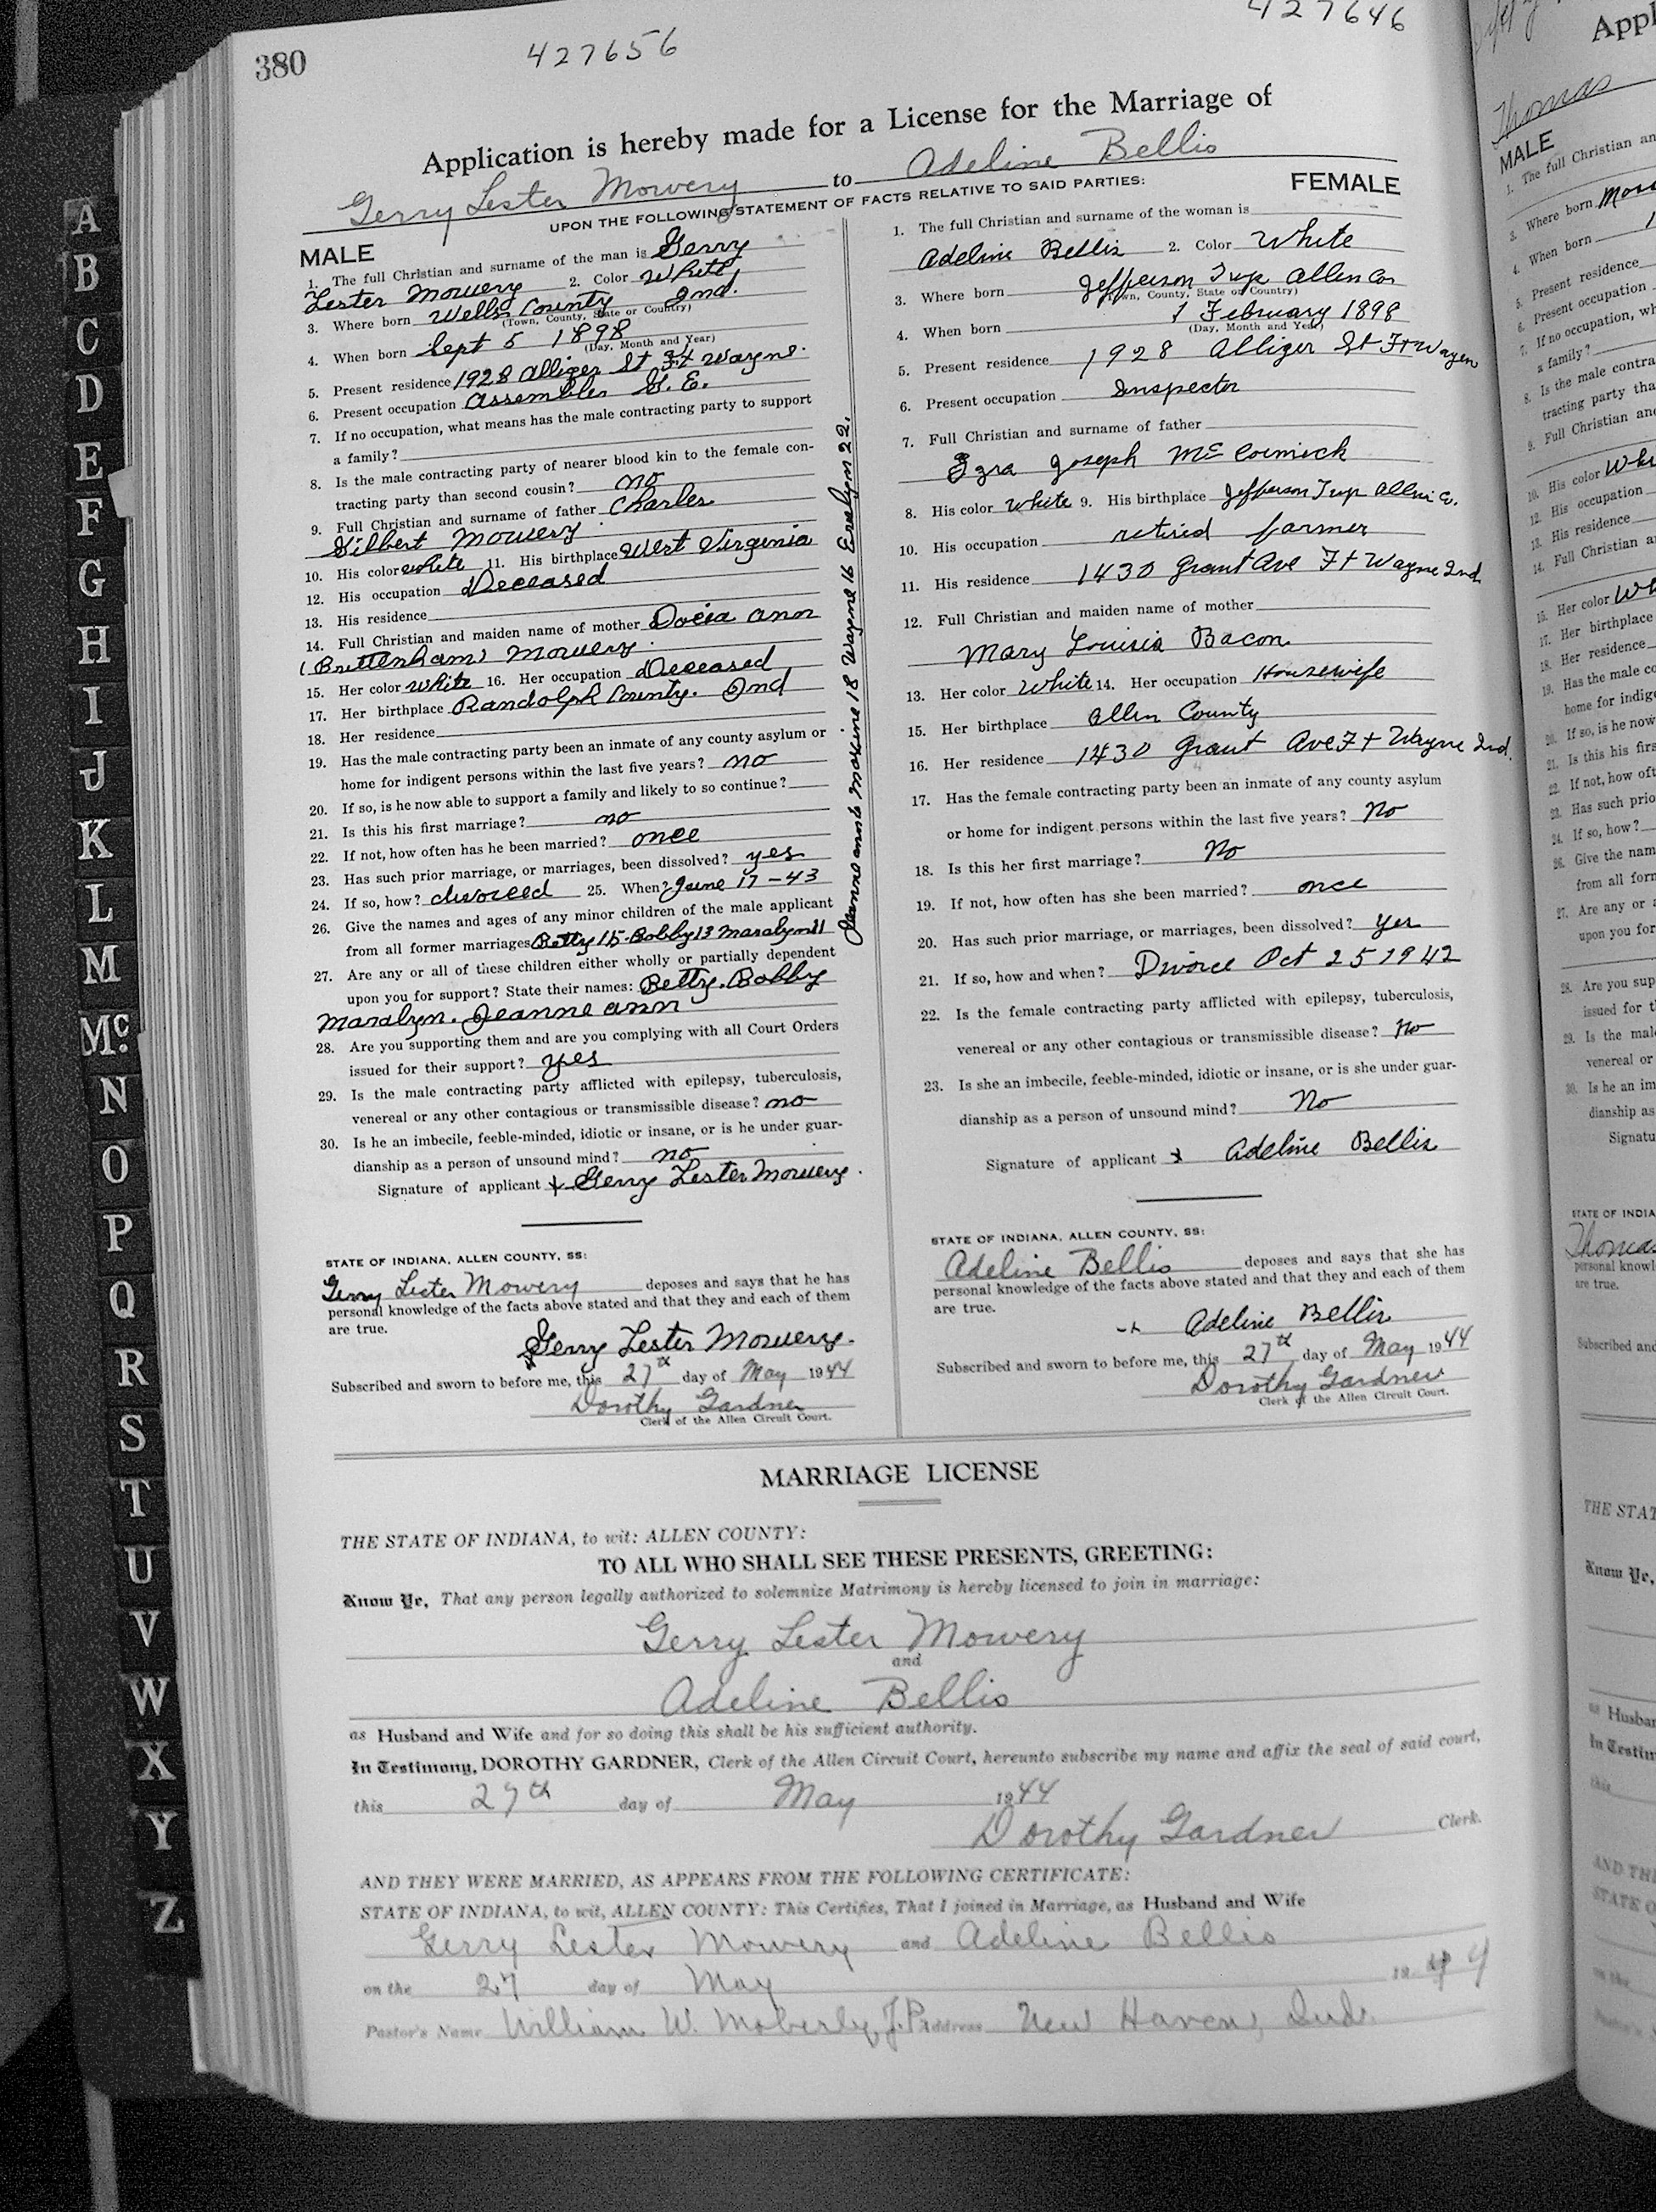 380
427656
427646
Application is hereby made for a License for the Marriage of
Gerry Lester Mowery to Adeline Bellis
UPON THE FOLLOWING STATEMENT OF FACTS RELATIVE TO SAID PARTIES:
MALE
1. The full Christian and surname of the man is Gerry
Lester Mowery 2. Color White
3. Where born Wells County Ind.
(Town, County, State or Country)
4. When born Sept 5 1898
(Day, Month and Year)
5. Present residence 1928 Alliger St Ft Wayne.
6. Present occupation Assembler G. E.
7. If no occupation, what means has the male contracting party to support
a family?
8. Is the male contracting party of nearer blood kin to the female con-
tracting party than second cousin? no
9. Full Christian and surname of father Charles
Gilbert Mowery
10. His color white 11. His birthplace West Virginia
12. His occupation Deceased
13. His residence
14. Full Christian and maiden name of mother Docia Ann
(Brittenham) Mowery
15. Her color White 16. Her occupation Deceased
17. Her birthplace Randolph County. Ind
18. Her residence
19. Has the male contracting party been an inmate of any county asylum or
home for indigent persons within the last five years? no
20. If so, is he now able to support a family and likely to so continue?
21. Is this his first marriage? no
22. If not, how often has he been married? once
23. Has such prior marriage, or marriages, been dissolved? yes
24. If so, how? divorced 25. When? June 17-43
26. Give the names and ages of any minor children of the male applicant
from all former marriages Betty 15. Bobby 13 Maralyn 11
27. Are any or all of these children either wholly or partially dependent
upon you for support? State their names: Betty. Bobby
Maralyn. Jeanne Ann
28. Are you supporting them and are you complying with all Court Orders
issued for their support? yes
29. Is the male contracting party afflicted with epilepsy, tuberculosis,
venereal or any other contagious or transmissible disease? no
30. Is he an imbecile, feeble-minded, idiotic or insane, or is he under guar-
dianship as a person of unsound mind? no
Signature of applicant x Gerry Lester Mowery.
Jeanne Ann 6 Maxine 18 Wayne 16 Evelyn 22.
FEMALE
1. The full Christian and surname of the woman is
Adeline Bellis 2. Color White
3. Where born Jefferson Twp Allen Co
(Town, County, State or Country)
4. When born 1 February 1898
(Day, Month and Year)
5. Present residence 1928 Alliger St Ft Wayen
6. Present occupation Inspector
7. Full Christian and surname of father
Ezra Joseph McCormick
8. His color White 9. His birthplace Jefferson Twp Allen Co.
10. His occupation retired farmer
11. His residence 1430 Grant Ave Ft Wayne Ind
12. Full Christian and maiden name of mother
Mary Louisia Bacon
13. Her color White 14. Her occupation Housewife
15. Her birthplace Allen County
16. Her residence 1430 Grant Ave Ft Wayne Ind.
17. Has the female contracting party been an inmate of any county asylum
or home for indigent persons within the last five years? No
18. Is this her first marriage? No
19. If not, how often has she been married? once
20. Has such prior marriage, or marriages, been dissolved? Yes
21. If so, how and when? Divorce Oct 25 1942
22. Is the female contracting party afflicted with epilepsy, tuberculosis,
venereal or any other contagious or transmissible disease? No
23. Is she an imbecile, feeble-minded, idiotic or insane, or is she under guar-
dianship as a person of unsound mind? No
Signature of applicant x Adeline Bellis
STATE OF INDIANA, ALLEN COUNTY, SS:
Gerry Lester Mowery deposes and says that he has
personal knowledge of the facts above stated and that they and each of them
are true.
x Gerry Lester Mowery.
Subscribed and sworn to before me, this 27th day of May 1944
Dorothy Gardner
Clerk of the Allen Circuit Court.
STATE OF INDIANA, ALLEN COUNTY, SS:
Adeline Bellis deposes and says that she has
personal knowledge of the facts above stated and that they and each of them
are true.
x Adeline Bellis
Subscribed and sworn to before me, this 27th day of May 1944
Dorothy Gardner
Clerk of the Allen Circuit Court.
MARRIAGE LICENSE
THE STATE OF INDIANA, to wit: ALLEN COUNTY:
TO ALL WHO SHALL SEE THESE PRESENTS, GREETING:
Know Ye, That any person legally authorized to solemnize Matrimony is hereby licensed to join in marriage:
Gerry Lester Mowery
and
Adeline Bellis
as Husband and Wife and for so doing this shall be his sufficient authority.
In Testimony, DOROTHY GARDNER, Clerk of the Allen Circuit Court, hereunto subscribe my name and affix the seal of said court,
this 27th day of May 1944
Dorothy Gardner Clerk.
AND THEY WERE MARRIED, AS APPEARS FROM THE FOLLOWING CERTIFICATE:
STATE OF INDIANA, to wit, ALLEN COUNTY: This Certifies, That I joined in Marriage, as Husband and Wife
Gerry Lester Mowery and Adeline Bellis
on the 27 day of May 1944
Pastor's Name William W. Moberly, J.P. Address New Haven, Ind.
A
B
C
D
E
F
G
H
I
J
K
L
M
Mc
N
O
P
Q
R
S
T
U
V
W
X
Y
Z
Thomas
MALE
1. The full Christian an
3. Where born
4. When born
5. Present residence
6. Present occupation
7. If no occupation, wh
a family?
8. Is the male contra
tracting party tha
9. Full Christian and
10. His color Whi
12. His occupation
13. His residence
14. Full Christian a
15. Her color Wh
17. Her birthplace
18. Her residence
19. Has the male co
home for indige
20. If so, is he now
21. Is this his firs
22. If not, how oft
23. Has such prio
24. If so, how?
26. Give the nam
from all form
27. Are any or a
upon you for
28. Are you sup
issued for t
29. Is the male
venereal or
30. Is he an im
dianship as
Signatu
STATE OF INDIA
Thomas
personal knowl
are true.
Subscribed and
THE STAT
Know Ye,
as Husban
In Testim
this
AND THE
STATE O
on the